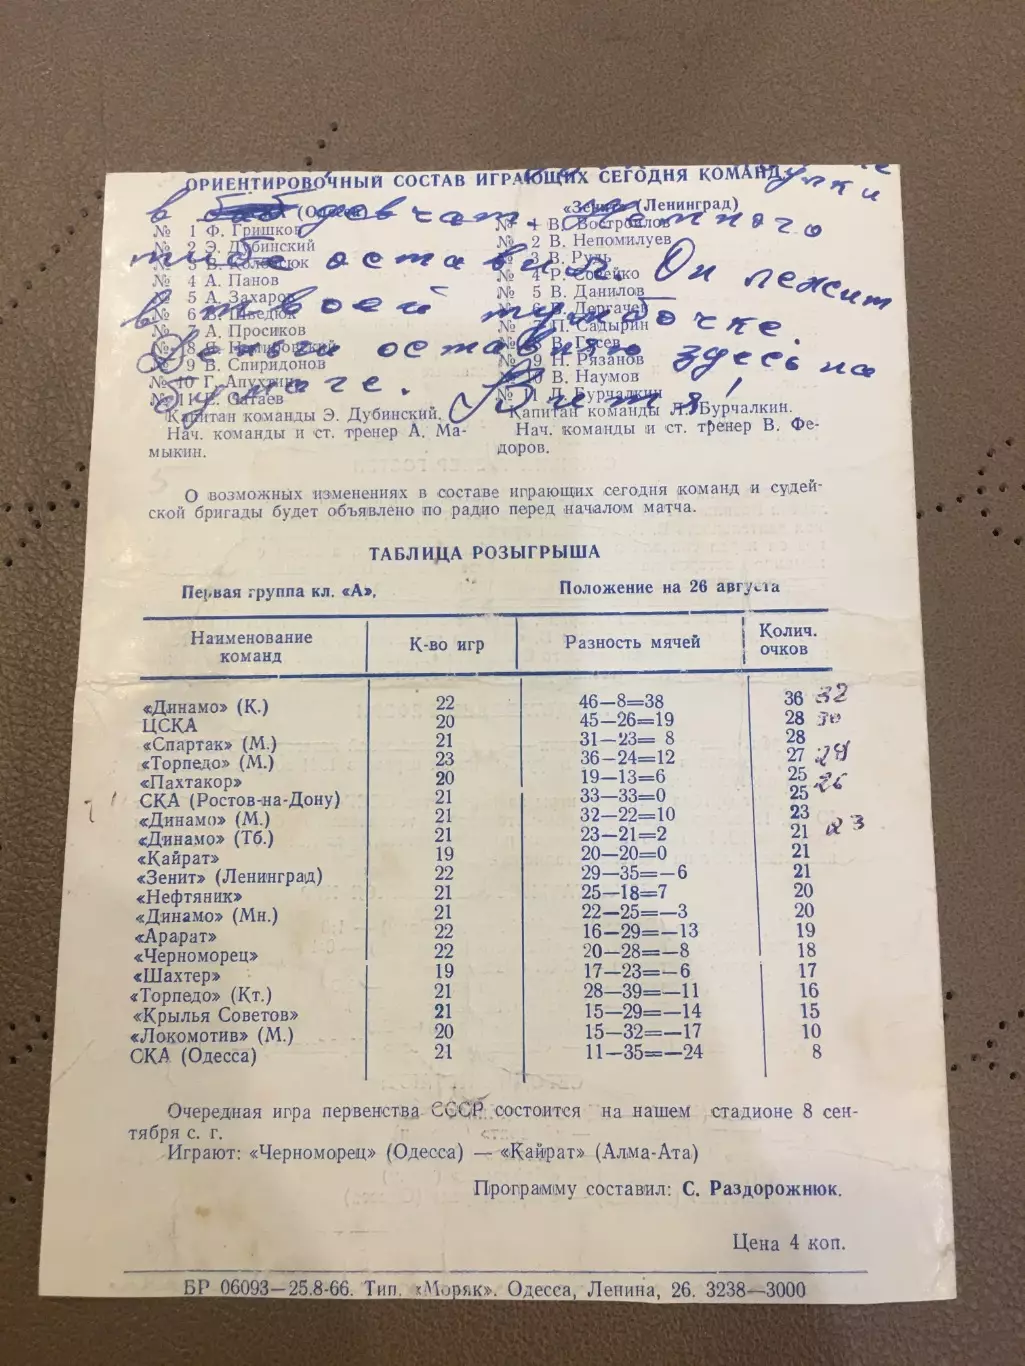 ОРИЕНТИРОВОЧНЫЙ СОСТАВ ИГРАЮЩИХ СЕГОДНЯ КОМАНД
булки
в девчат. немного
тебе оставил. Он лежит
в твоей тумбочке.
Деньги оставляю здесь на
бумаге. Витя!
(Одесса)
№ 1 Ф. Гришков
№ 2 Э. Дубинский
№ 3
№ 4 А. Панов
№ 5 А. Захаров
№ 6 В. Шведюк
№ 7 А. Просиков
№ 8
№ 9 В. Спиридонов
№ 10 Г. Апухтин
№ 11
Капитан команды Э. Дубинский.
Нач. команды и ст. тренер А. Ма-
мыкин.
«Зенит» (Ленинград)
№ 1 В. Востроилов
№ 2 В. Непомилуев
№ 3 В. Рудь
№ 4 Р. Совейко
№ 5 В. Данилов
№ 6 В. Дергачев
№ 7 П. Садырин
№ 8 В. Гусев
№ 9 Н. Рязанов
№ 10 В. Наумов
№ 11 Л. Бурчалкин
Капитан команды Л. Бурчалкин.
Нач. команды и ст. тренер В. Фе-
доров.
О возможных изменениях в составе играющих сегодня команд и судей-
ской бригады будет объявлено по радио перед началом матча.
ТАБЛИЦА РОЗЫГРЫША
Первая группа кл. «А», Положение на 26 августа
Наименование команд К-во игр Разность мячей Колич. очков
«Динамо» (К.) 22 46—8=38 36 32
ЦСКА 20 45—26=19 28 30
«Спартак» (М.) 21 31—23= 8 28
«Торпедо» (М.) 23 36—24=12 27 28
«Пахтакор» 20 19—13=6 25
СКА (Ростов-на-Дону) 21 33—33=0 25 26
«Динамо» (М.) 21 32—22=10 23
«Динамо» (Тб.) 21 23—21=2 21 23
«Кайрат» 19 20—20=0 21
«Зенит» (Ленинград) 22 29—35=—6 21
«Нефтяник» 21 25—18=7 20
«Динамо» (Мн.) 21 22—25=—3 20
«Арарат» 22 16—29=—13 19
«Черноморец» 22 20—28=—8 18
«Шахтер» 19 17—23=—6 17
«Торпедо» (Кт.) 21 28—39=—11 16
«Крылья Советов» 21 15—29=—14 15
«Локомотив» (М.) 20 15—32=—17 10
СКА (Одесса) 21 11—35=—24 8
Очередная игра первенства СССР состоится на нашем стадионе 8 сен-
тября с. г.
Играют: «Черноморец» (Одесса) — «Кайрат» (Алма-Ата)
Программу составил: С. Раздорожнюк.
Цена 4 коп.
БР 06093—25.8-66. Тип. «Моряк». Одесса, Ленина, 26. 3238—3000